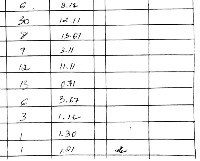 6 8.12
30 12.11
8 13.61
9 3.11
12 11.11
13 0.91
6 3.67
3 1.12
1 1.30
1 1.01